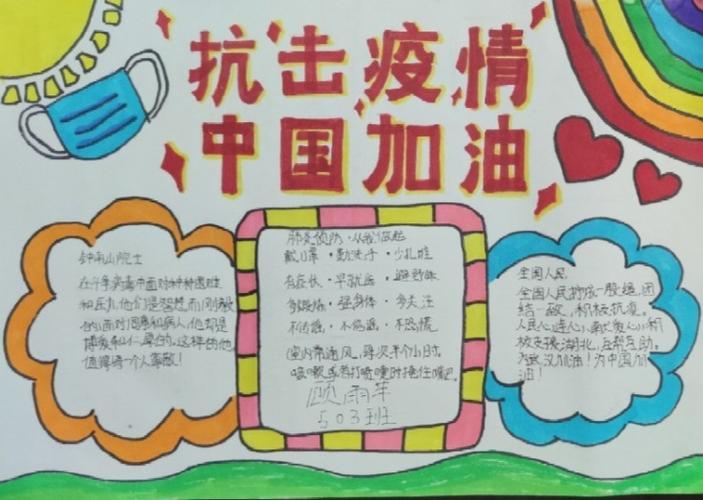 抗击疫情
中国加油
钟南山院士
在  年病毒  面对种种
和  他们是  而刚毅
的，面对同事和病人，他却是
博爱和仁厚的。这样的他
值得每一个人尊敬！
肺炎预防·从我做起
戴口罩·勤洗手·少扎堆
有症状·早就医·避野味
多锻炼·强身体·多关注
不传谣·不恐慌
室内常通风，每次半个小时。
咳嗽或者打喷嚏时捂住嘴巴。
顾雨
503班
全国人民
全国人民拧成一股绳，团
结一致，积极抗疫。
人民心连心，献爱心，积
极支援湖北，互帮互助。
为武汉加油！为中国加
油！